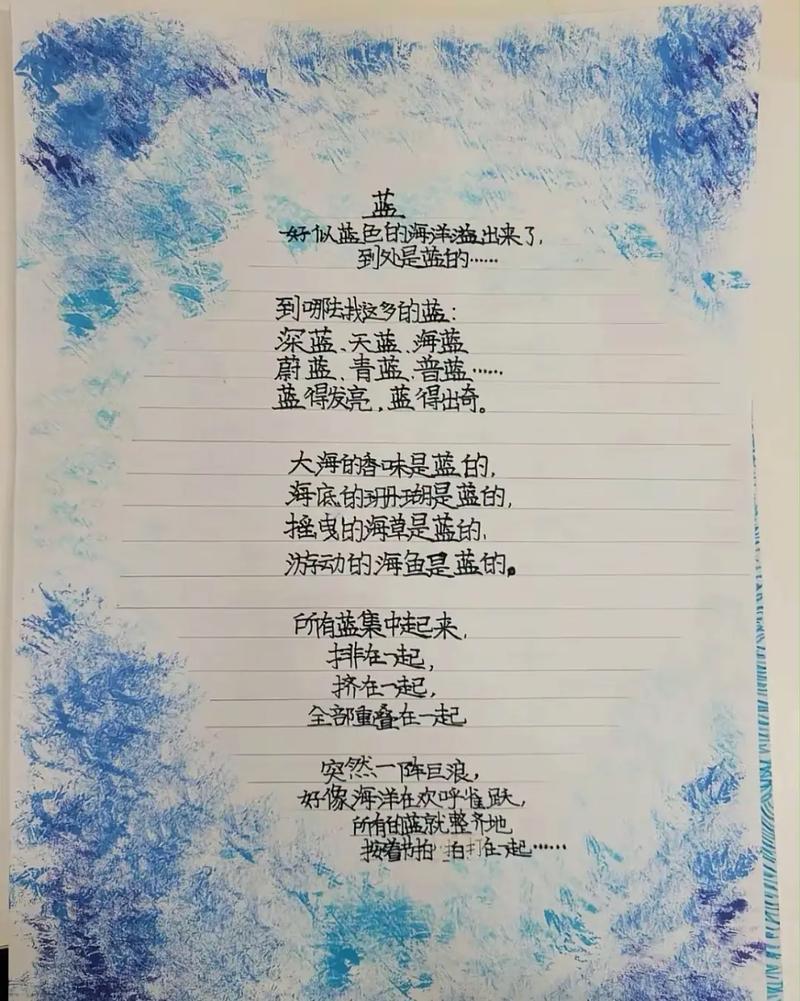 蓝
好似蓝色的海洋溢出来了,
到处是蓝的……
到哪去找这多的蓝:
深蓝、天蓝、海蓝
蔚蓝、青蓝、普蓝……
蓝得发亮,蓝得出奇。
大海的香味是蓝的,
海底的珊瑚是蓝的,
摇曳的海草是蓝的,
游动的海鱼是蓝的。
所有蓝集中起来,
排在一起,
挤在一起,
全部重叠在一起
突然一阵巨浪,
好像海洋在欢呼雀跃,
所有的蓝就整齐地
按着节拍 拍打在一起……